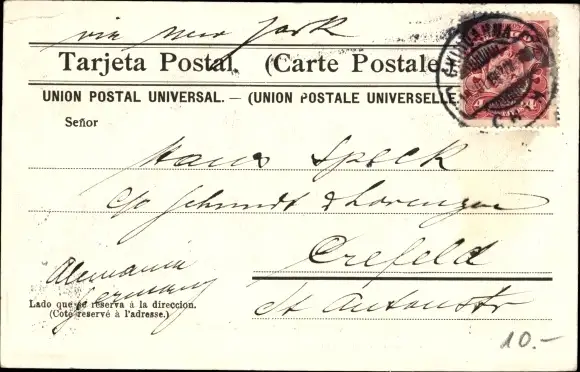 via New York
Tarjeta Postal. (Carte Postale
UNION POSTAL UNIVERSAL. — (UNION POSTALE UNIVERSELLE
CHIHUAHUA
Señor
Hans Speck
c/o Schmidt & Lorenzen
Crefeld
Alemania
Germany
St Antonstr
Lado que se reserva á la direccion.
(Coté reservé à l'adresse.)
10.-